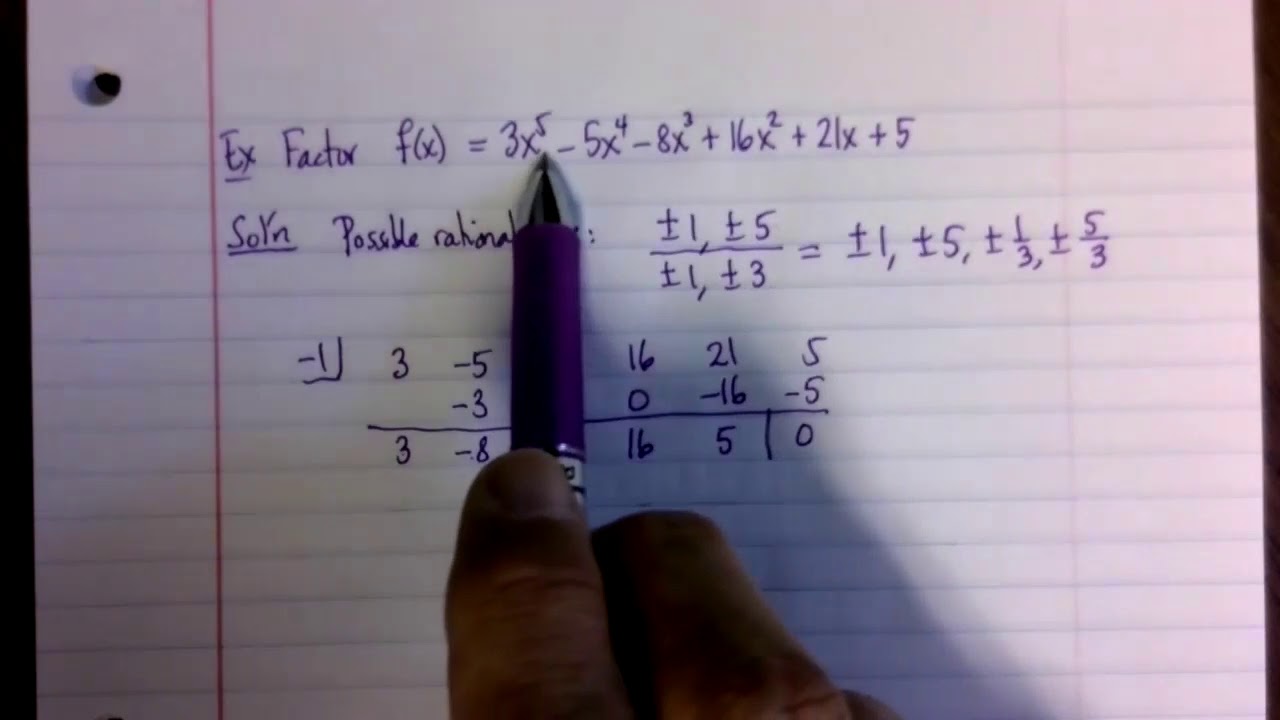 Ex Factor f(x) = 3x⁵ - 5x⁴ - 8x³ + 16x² + 21x + 5
Sol'n Possible rational : ±1, ±5 / ±1, ±3 = ±1, ±5, ±1/3, ±5/3
-1 3 -5 16 21 5
-3 0 -16 -5
3 -8 16 5 0